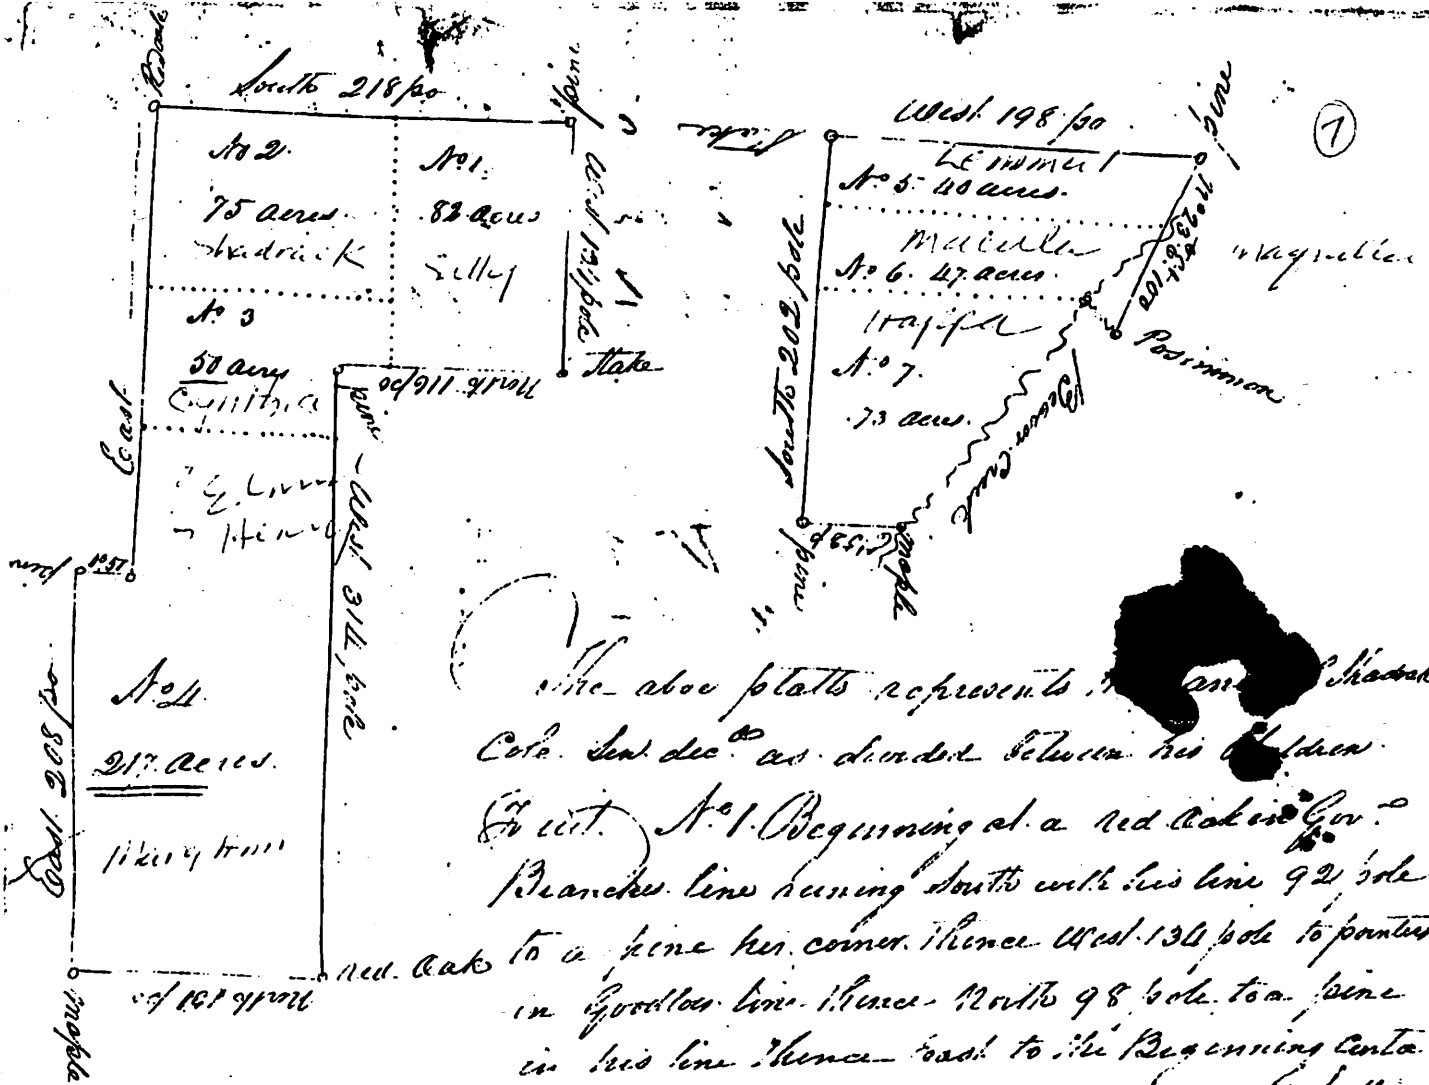 Red oak
South 218 po
pine
No 2.
75 acres
Shadrack
No 1.
82 acres
Silley
West 134 pole
Stake
North 116 po
No 3
50 acres
Cynthia
East
pine
West 314 pole
No 4
217 acres.
Mary Ann
East 208 po
Maple
North 131 po
red Oak
①
Stake
West 198 po
pine
Lemmuel
No 5. 40 acres.
No 6. 47 acres.
No 7.
73 acres.
South 202 pole
Posimmon
Beaver Creek
pine
maple
The abov platts represents Shadrack
Cole Senr. decd. as divided between his Children
To wit. No 1. Beginning at a red Oak in Govr.
Branches line running South with his line 92 pole
to a pine her corner. thence West 134 pole to pointers
in Goodloes line thence North 98 pole to a pine
in his line thence East to the Beginning Conta